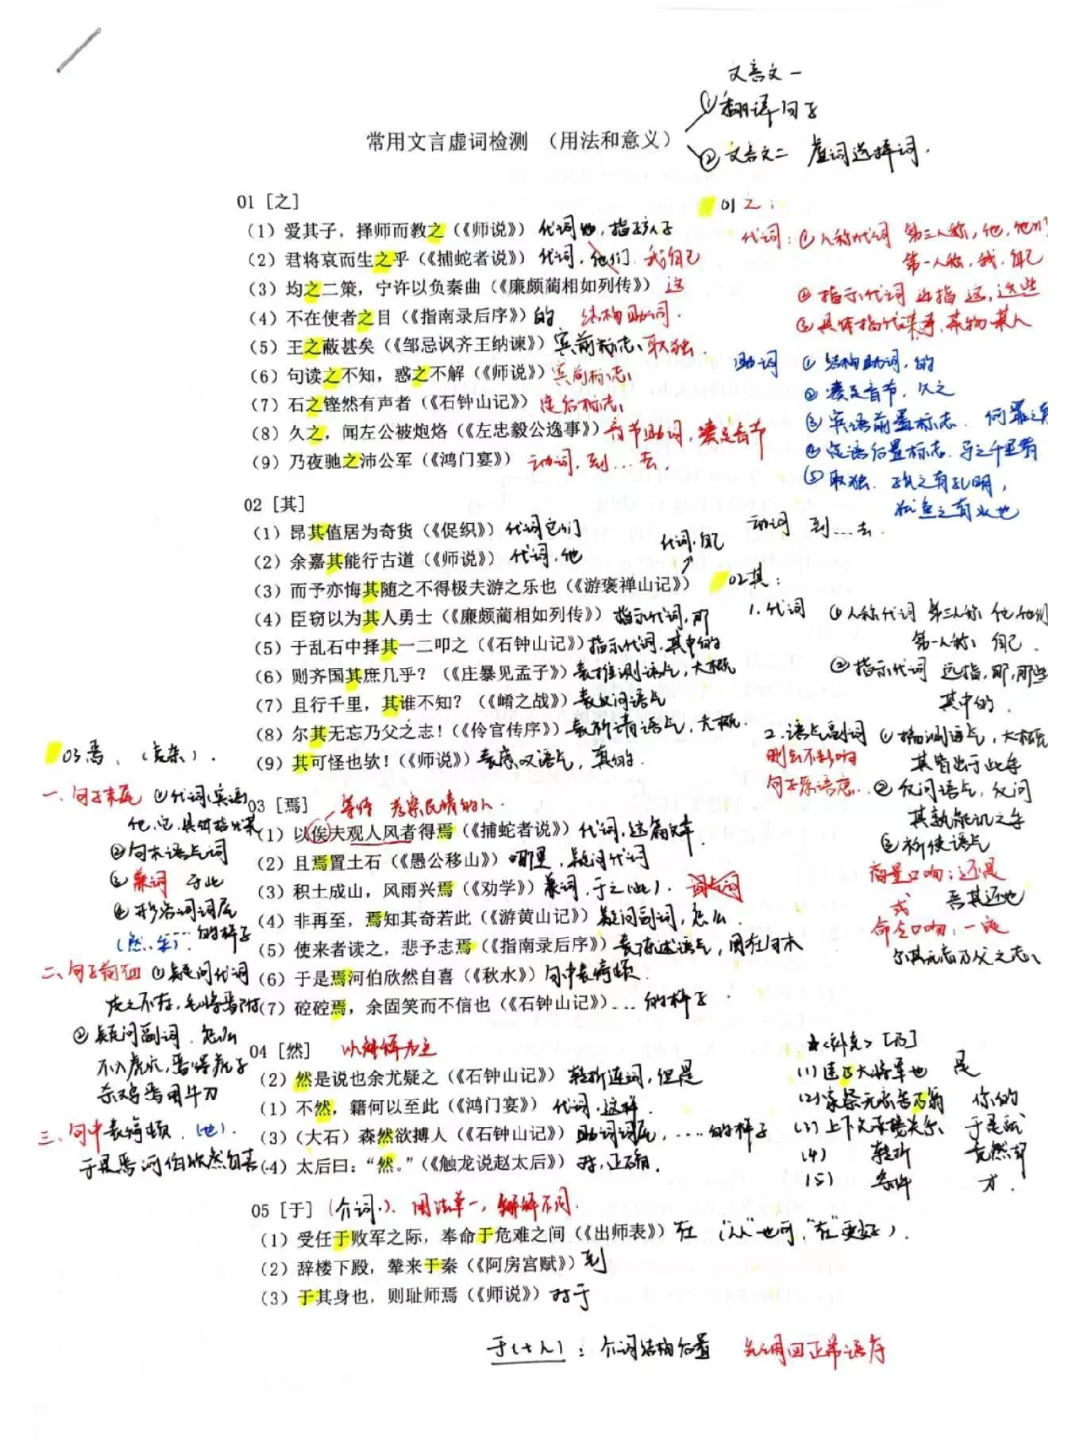 文言文一
①翻译句子
常用文言虚词检测 （用法和意义）
②文言文二 虚词选择词.
01 [之]
（1）爱其子，择师而教之（《师说》） 代词他，指孩子
（2）君将哀而生之乎（《捕蛇者说》） 代词，他们 我自己
（3）均之二策，宁许以负秦曲（《廉颇蔺相如列传》） 这
（4）不在使者之目（《指南录后序》） 的 结构助词.
（5）王之蔽甚矣（《邹忌讽齐王纳谏》） 宾前标志、取独.
（6）句读之不知，惑之不解（《师说》） 宾前标志；
（7）石之铿然有声者（《石钟山记》） 定后标志；
（8）久之，闻左公被炮烙（《左忠毅公逸事》） 音节助词，凑足音节
（9）乃夜驰之沛公军（《鸿门宴》） 动词，到...去.
01 之：
代词：①人称代词 第三人称，他，他们
第一人称，我，自己
②指示代词 近指 这，这些
③具体指代某事，某物某人
助词 ①结构助词，的
②凑足音节，久之
③宾语前置标志. 何罪之有
④定语后置标志.
⑤取独. 孤之有孔明，
犹鱼之有水也
动词 到...去.
02 [其]
（1）昂其值居为奇货（《促织》） 代词它们
（2）余嘉其能行古道（《师说》） 代词，他
（3）而予亦悔其随之不得极夫游之乐也（《游褒禅山记》） 代词，自己
（4）臣窃以为其人勇士（《廉颇蔺相如列传》） 指示代词，那
（5）于乱石中择其一二叩之（《石钟山记》） 指示代词，其中的
（6）则齐国其庶几乎？（《庄暴见孟子》） 表推测语气，大概
（7）且行千里，其谁不知？（《崤之战》） 表反问语气
（8）尔其无忘乃父之志！（《伶官传序》） 表祈请语气，
（9）其可怪也欤！（《师说》） 表感叹语气，真的.
02其：
1.代词 ①人称代词 第三人称 他，他们
第一人称： 自己.
②指示代词 远指，那，那些
其中的.
2.语气副词 ①推测语气，大概
其皆出于此乎
删去不影响
句子原语意.
②反问语气，反问
其孰能讥之乎
③祈使语气
商量口吻：还是
吾其还也
或
命令口吻：一定
尔其无忘乃父之志、
03焉、（兼）.
一、句子末尾 ①代词，宾语
②句末语气词
③兼词 于此
④形容词词尾
......的样子
二、句子前面 ①疑问代词
②疑问副词. 怎么
不入虎穴，焉得虎子
杀鸡焉用牛刀
三、句中表停顿.
于是焉河伯欣然自喜
03 [焉] 等待
（1）以俟夫观人风者得焉（《捕蛇者说》） 代词，这篇文章
（2）且焉置土石（《愚公移山》） 哪里，疑问代词
（3）积土成山，风雨兴焉（《劝学》） 兼词，于之（此）.
（4）非再至，焉知其奇若此（《游黄山记》） 疑问副词，怎么.
（5）使来者读之，悲予志焉（《指南录后序》） 表陈述语气，用在句末
（6）于是焉河伯欣然自喜（《秋水》） 句中表停顿.
（7）硁硁焉，余固笑而不信也（《石钟山记》） ...的样子
04 [然]
（2）然是说也余尤疑之（《石钟山记》） 转折连词，但是
（1）不然，籍何以至此（《鸿门宴》） 代词，这样.
（3）（大石）森然欲搏人（《石钟山记》） 助词词尾，......的样子
（4）太后曰：“然。”（《触龙说赵太后》） 对，正确.
★<补充> [乃]
(1) 是
(2)家祭无忘告乃翁 你的
(3)上下文承接关系 于是就
(4) 转折 竟然却
(5) 条件 才.
05 [于] （介词.）. 用法单一，解释不同.
（1）受任于败军之际，奉命于危难之间（《出师表》） 在 （“从”也可，“在”更好）.
（2）辞楼下殿，辇来于秦（《阿房宫赋》） 到
（3）于其身也，则耻师焉（《师说》） 对于
于（+n）：介词结构后置 先调回正常语序